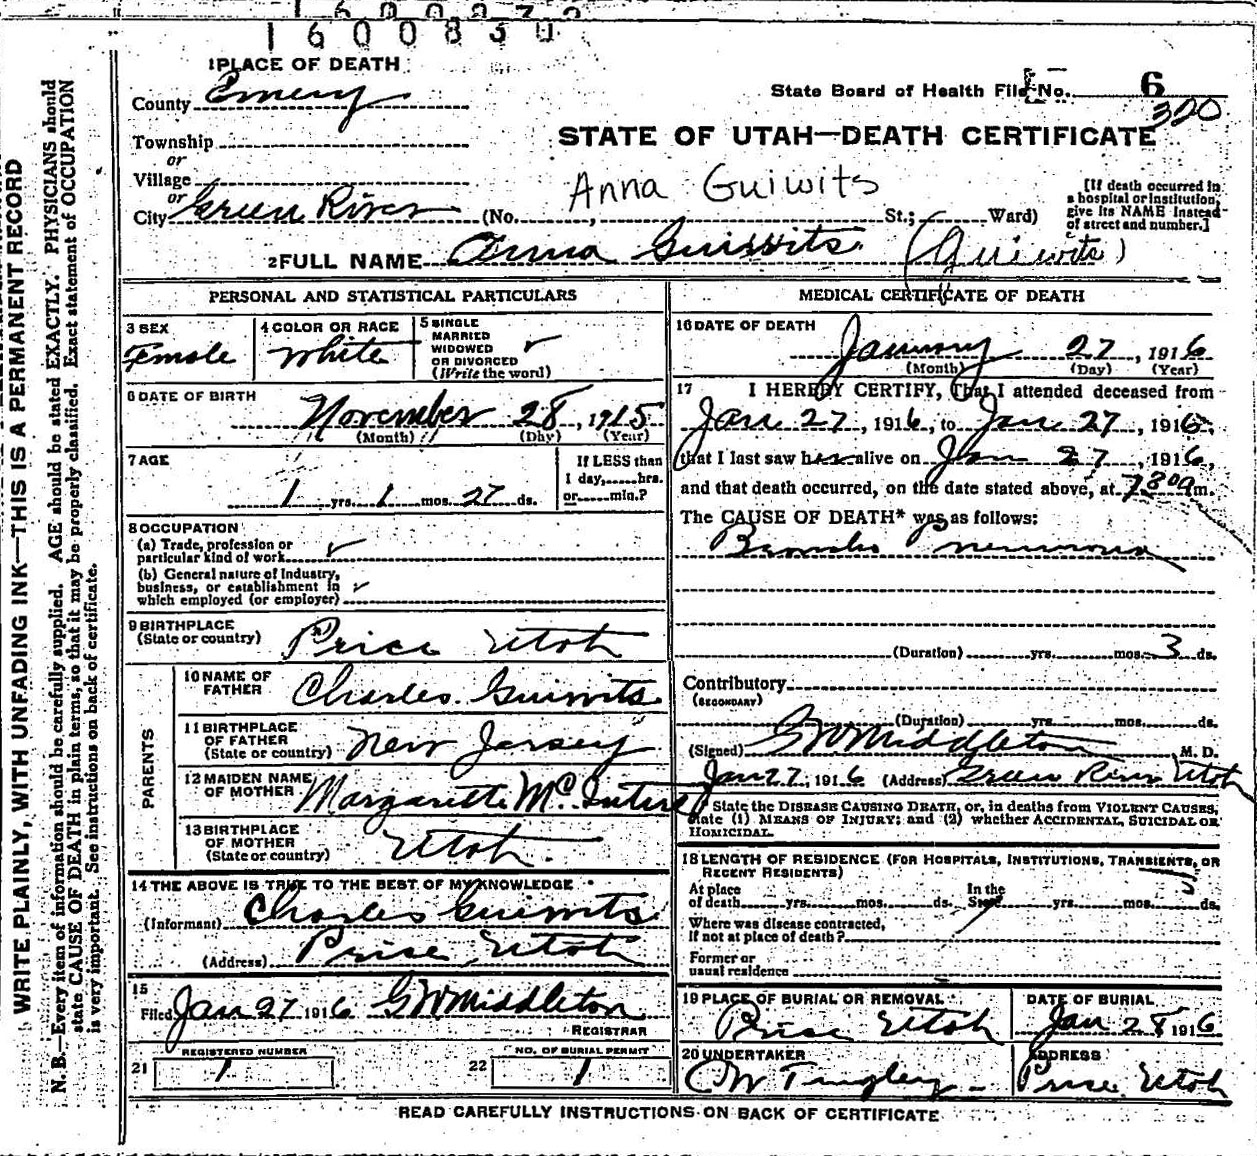 1600830
1 PLACE OF DEATH
County Emery
State Board of Health File No. 6
320
Township
or
Village
or
City Green River (No. , St.; Ward)
STATE OF UTAH—DEATH CERTIFICATE
Anna Guiwits
[If death occurred in
a hospital or institution,
give its NAME instead
of street and number.]
2 FULL NAME Anna Guiwits (Guiwits)
PERSONAL AND STATISTICAL PARTICULARS
3 SEX
Female
4 COLOR OR RACE
White
5 SINGLE
MARRIED
WIDOWED
OR DIVORCED
(Write the word)
6 DATE OF BIRTH
November 28, 1915
(Month) (Day) (Year)
7 AGE
1 yrs. 1 mos. 27 ds.
If LESS than
1 day, hrs.
or min.?
8 OCCUPATION
(a) Trade, profession or
particular kind of work
(b) General nature of Industry,
business, or establishment in
which employed (or employer)
9 BIRTHPLACE
(State or country) Price Utah
PARENTS
10 NAME OF
FATHER Charles Guiwits
11 BIRTHPLACE
OF FATHER
(State or country) New Jersey
12 MAIDEN NAME
OF MOTHER Margarette
13 BIRTHPLACE
OF MOTHER
(State or country) Utah
14 THE ABOVE IS TRUE TO THE BEST OF MY KNOWLEDGE
(Informant) Charles Guiwits
(Address) Price Utah
15
Filed Jan 27 1916 GW Middleton
REGISTRAR
21 REGISTERED NUMBER
1
22 NO. OF BURIAL PERMIT
1
MEDICAL CERTIFICATE OF DEATH
16 DATE OF DEATH
January 27, 1916
(Month) (Day) (Year)
17 I HEREBY CERTIFY, That I attended deceased from
Jan 27, 1916, to Jan 27, 1916,
that I last saw her alive on Jan 27, 1916,
and that death occurred, on the date stated above, at 7 30 a m.
The CAUSE OF DEATH* was as follows:
Broncho Pneumonia
(Duration) yrs. mos. 3 ds.
Contributory
(SECONDARY)
(Duration) yrs. mos. ds.
(Signed) GW Middleton M. D.
Jan 27, 1916 (Address) Green River Utah
State the DISEASE CAUSING DEATH, or, in deaths from VIOLENT CAUSES,
state (1) MEANS OF INJURY; and (2) whether ACCIDENTAL, SUICIDAL OR
HOMICIDAL.
18 LENGTH OF RESIDENCE (FOR HOSPITALS, INSTITUTIONS, TRANSIENTS, OR
RECENT RESIDENTS)
At place
of death yrs. mos. ds.
In the
State yrs. mos. ds.
Where was disease contracted,
If not at place of death?
Former or
usual residence
19 PLACE OF BURIAL OR REMOVAL
Price Utah
DATE OF BURIAL
Jan 28 1916
20 UNDERTAKER
CW Tingley
ADDRESS
Price Utah
READ CAREFULLY INSTRUCTIONS ON BACK OF CERTIFICATE
WRITE PLAINLY, WITH UNFADING INK—THIS IS A PERMANENT RECORD
N. B.—Every item of information should be carefully supplied. AGE should be stated EXACTLY. PHYSICIANS should
state CAUSE OF DEATH in plain terms, so that it may be properly classified. Exact statement of OCCUPATION
is very important. See instructions on back of certificate.